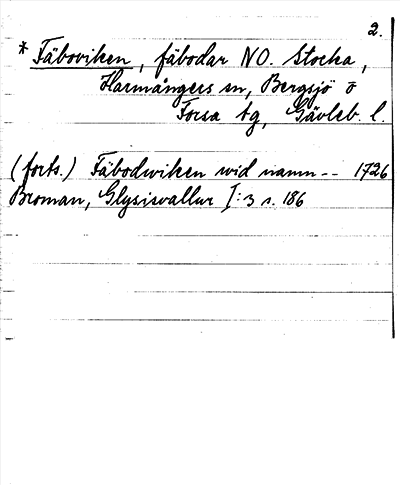 2.
* Fäboviken, fäbodar NO. Stocka,
Harmångers sn, Bergsjö o
Forsa tg, Gävleb. l.
(forts.) Fäbodwiken wid namn -- 1726
Broman, Glysisvallur I:3 s. 186